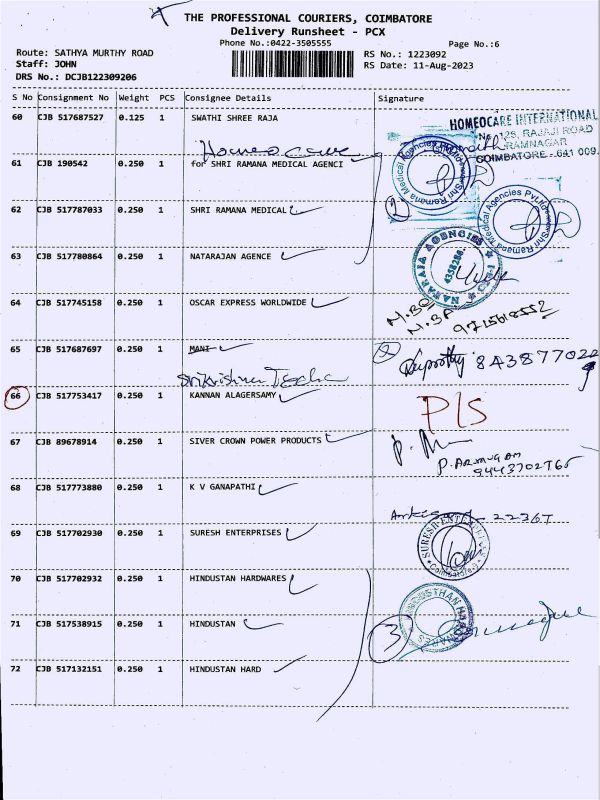 THE PROFESSIONAL COURIERS, COIMBATORE
Delivery Runsheet - PCX
Phone No.:0422-3505555
Page No.:6
Route: SATHYA MURTHY ROAD
RS No.: 1223092
Staff: JOHN
RS Date: 11-Aug-2023
DRS No.: DCJB122309206
S No Consignment No Weight PCS Consignee Details Signature
60 CJB 517687527 0.125 1 SWATHI SHREE RAJA
HOMEOCARE INTERNATIONAL
No. 125, RAJAJI ROAD
RAMNAGAR
COIMBATORE - 641 009.
Homeo care
61 CJB 190542 0.250 1 for SHRI RAMANA MEDICAL AGENCY
Shri Ramana Medical Agencies Pvt Ltd
62 CJB 517787033 0.250 1 SHRI RAMANA MEDICAL
2
Shri Ramana Medical Agencies Pvt Ltd
63 CJB 517780864 0.250 1 NATARAJAN AGENCE
NATARAJA AGENCIES
4358286
64 CJB 517745158 0.250 1 OSCAR EXPRESS WORLDWIDE
65 CJB 517687697 0.250 1 MANI
Srikrishna Tech
66 CJB 517753417 0.250 1 KANNAN ALAGERSAMY
P/S
67 CJB 89678914 0.250 1 SIVER CROWN POWER PRODUCTS
P. ARUMUGAM
68 CJB 517773880 0.250 1 K V GANAPATHI
69 CJB 517702930 0.250 1 SURESH ENTERPRISES
SURESH ENTERPRISES
Coimbatore
70 CJB 517702932 0.250 1 HINDUSTAN HARDWARES
71 CJB 517538915 0.250 1 HINDUSTAN
3
72 CJB 517132151 0.250 1 HINDUSTAN HARD